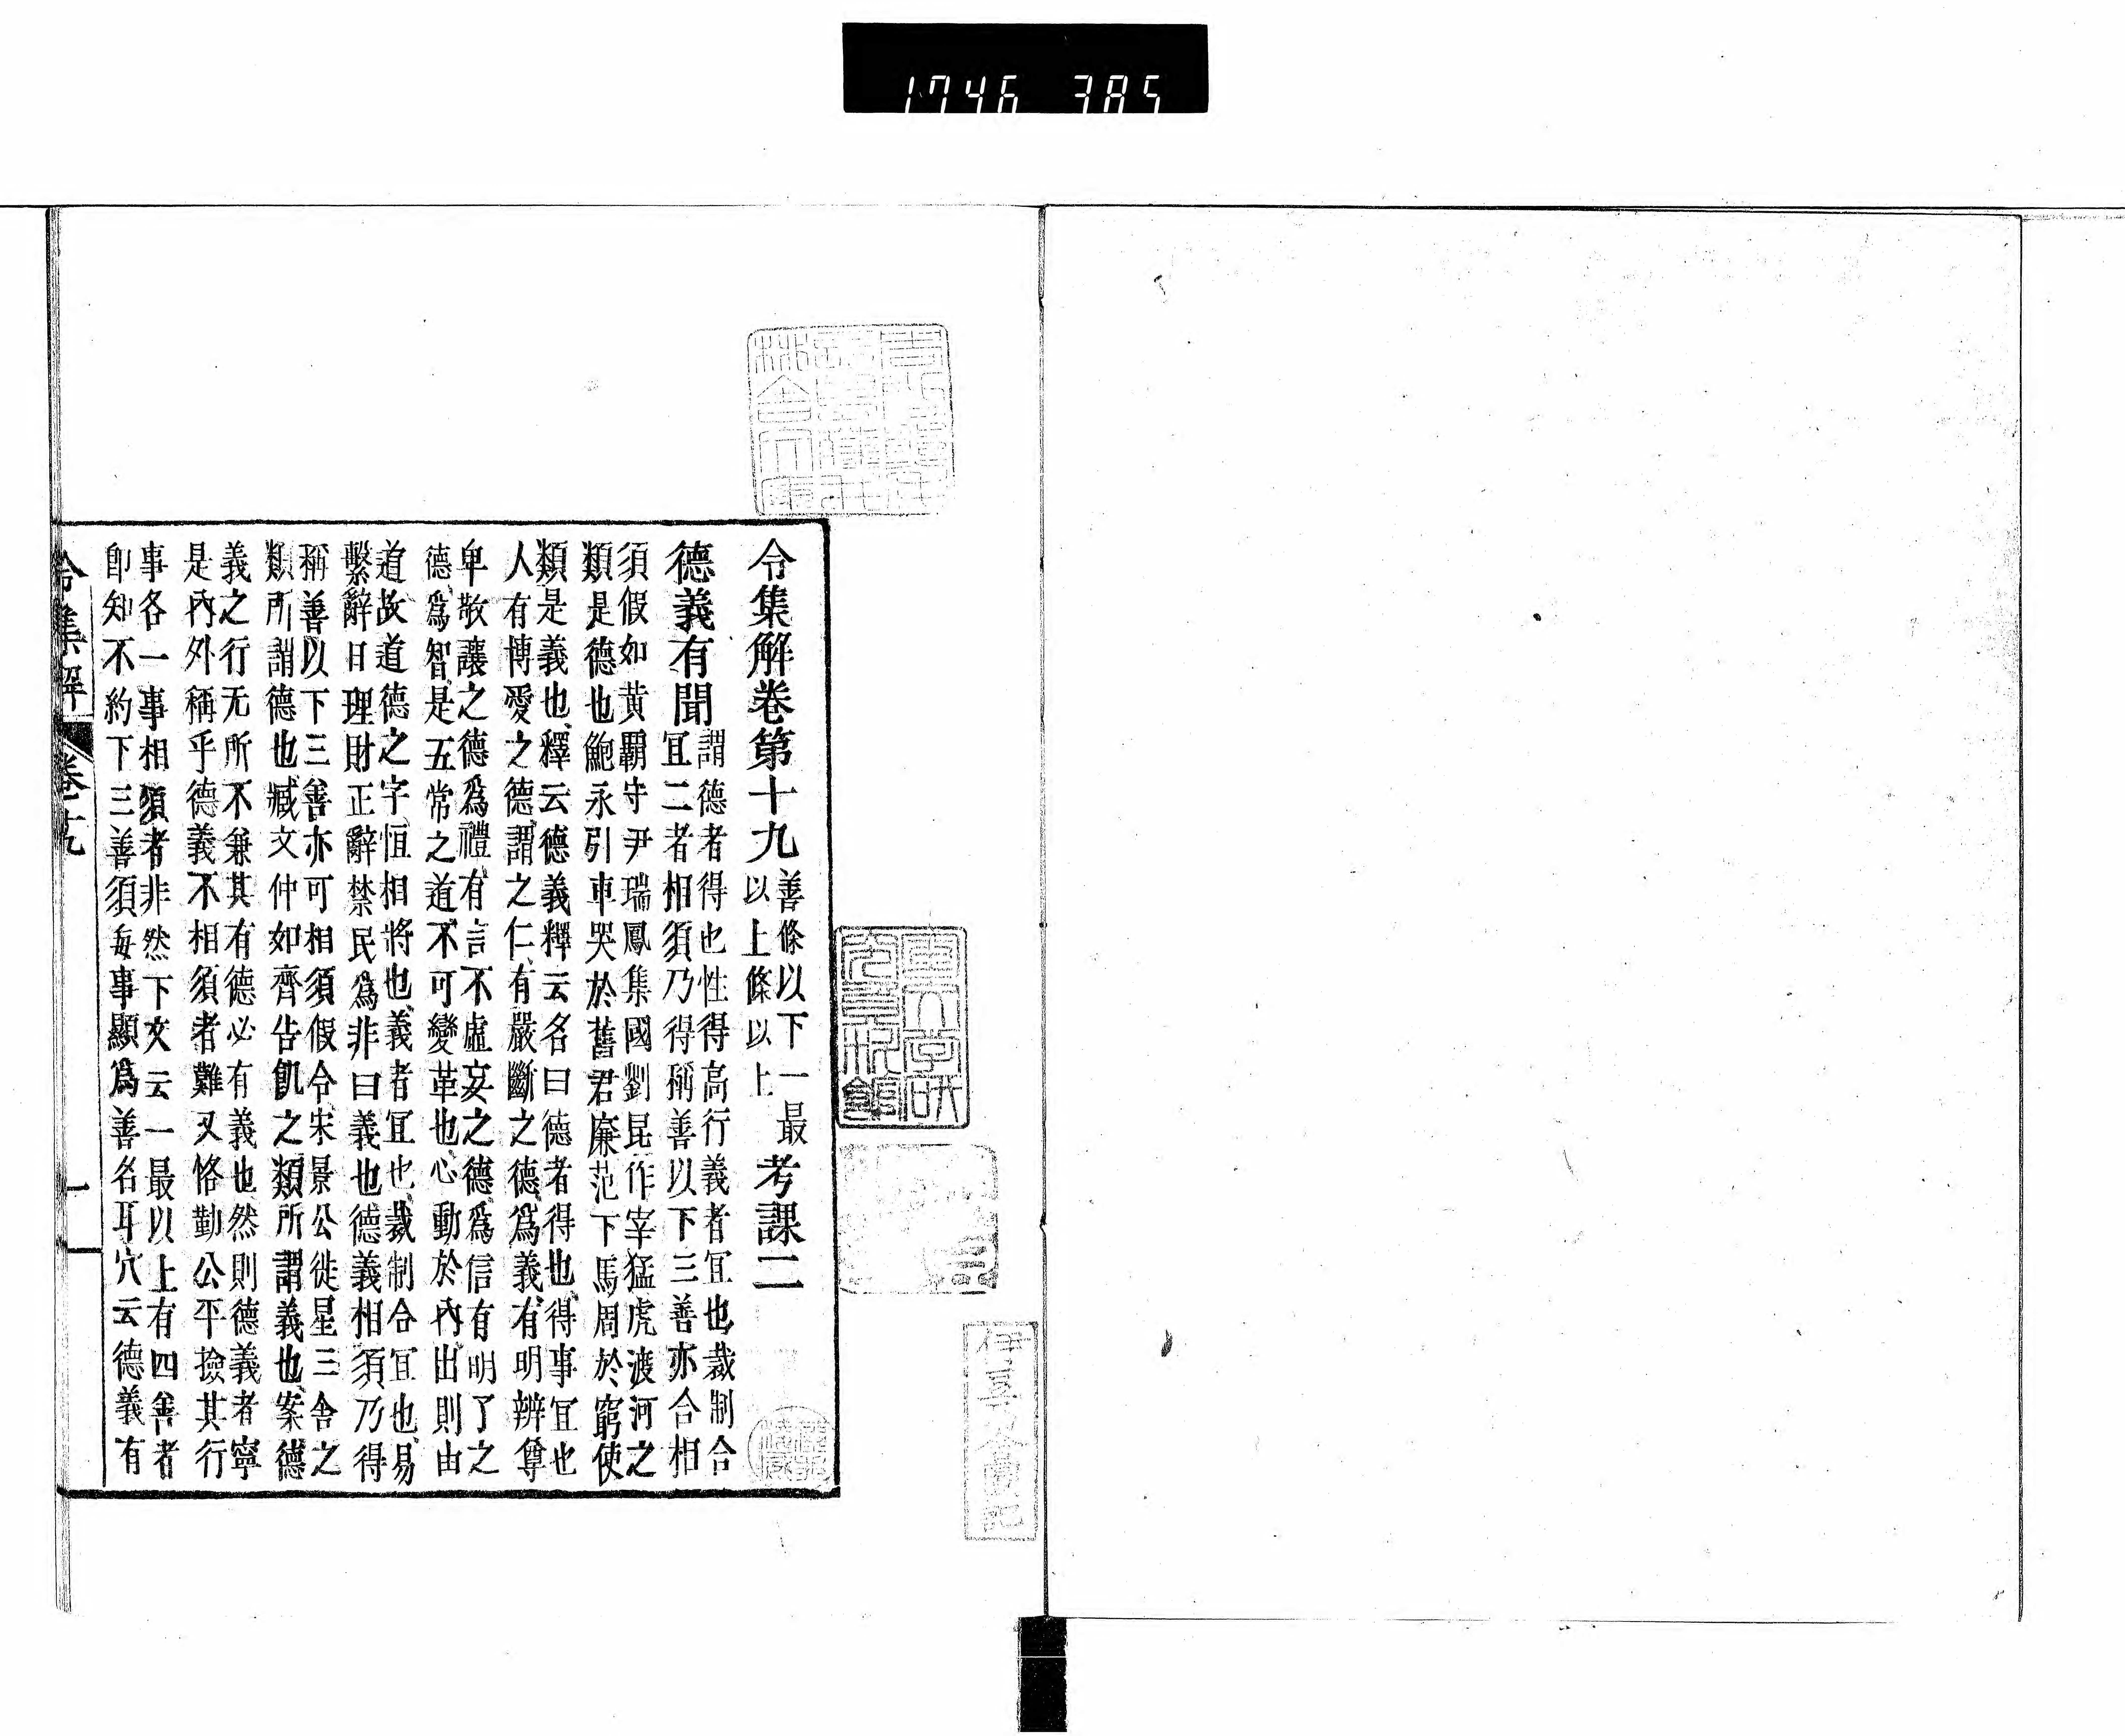 1746 385
令集解卷第十九 善條以下一最 以上條以上 考課二
德義有聞 謂德者得也性得高行義者冝也裁制合
冝二者相須乃得稱善以下三善亦合相
須假如黄覇守尹瑞鳳集國劉昆作宰猛虎渡河之
類是德也鮑永引車哭於舊君廉范下馬周於窮使
類是義也釋云德義釋云名曰德者得也得事冝也
人有博愛之德謂之仁有嚴斷之德爲義有明辨尊
卑敬讓之德爲禮有言不虛妄之德爲信有明了之
德爲智是五常之道不可變革也心動於內出則由
道故道德之字恒相將也義者冝也裁制合冝也易
繫辭曰理財正辭禁民爲非曰義也德義相須乃得
稱善以下三善亦可相須假令宋景公徙星三舍之
類所謂德也臧文仲如齊告飢之類所謂義也案德
義之行无所不兼其有德必有義也然則德義者寧
是內外稱乎德義不相須者難又恪勤公平撿其行
事各一事相須者非然下文云一最以上有四善者
卽知不約下三善須每事顯爲善名耳穴云德義有
令集解 卷十九 一